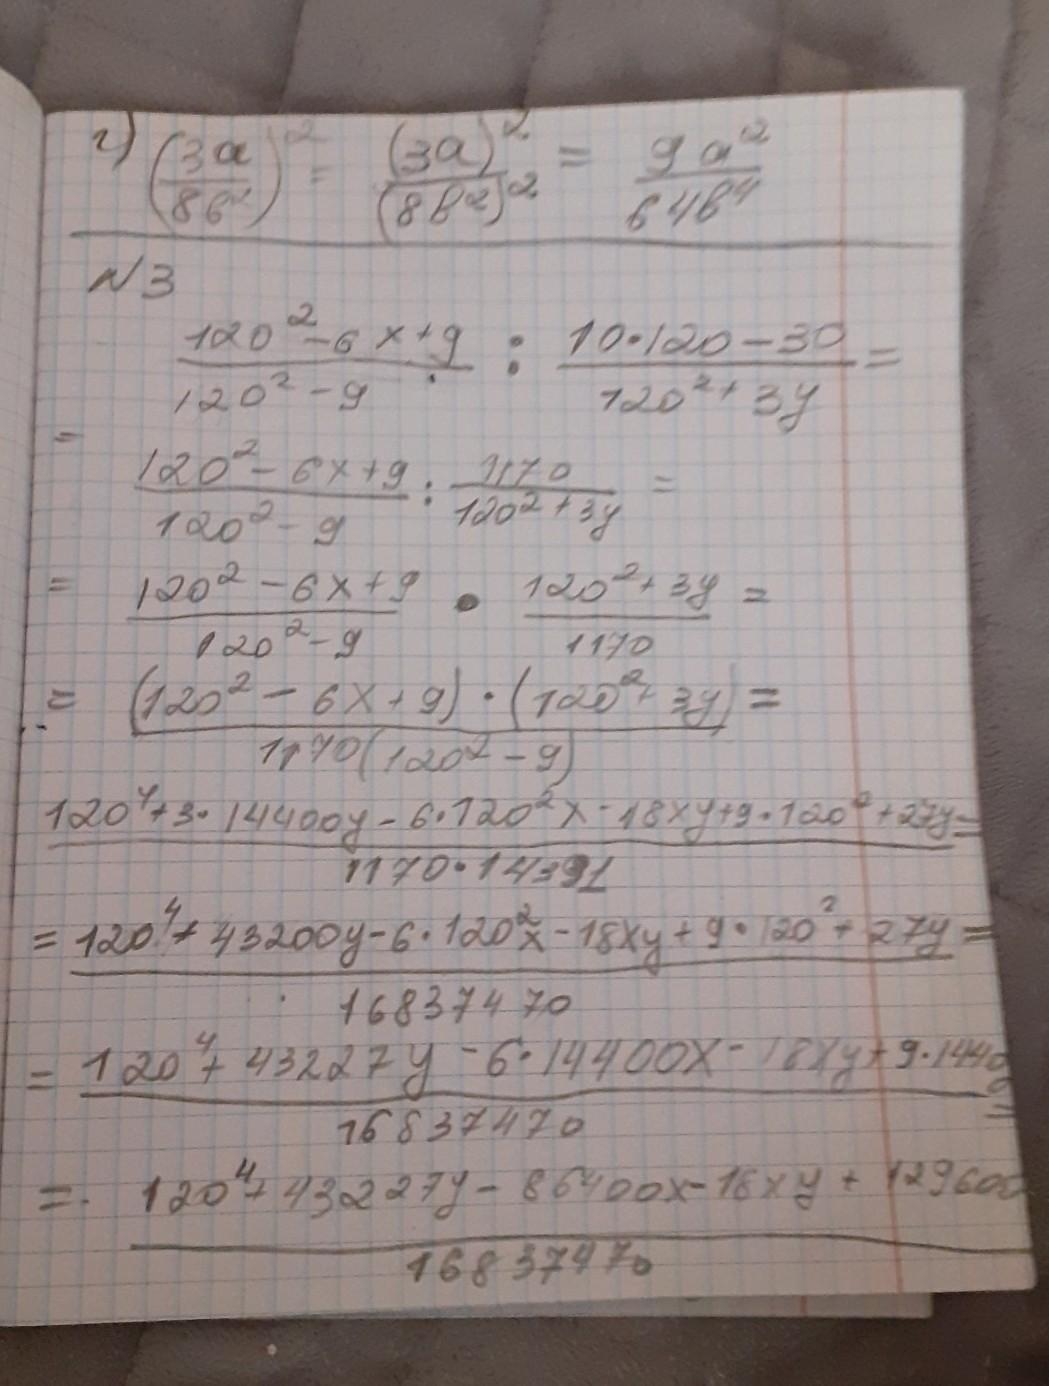 г) (3a/8b²)² = (3a)²/(8b²)² = 9a²/64b⁴
N3
120²-6x+9/120²-9 : 10·120-30/120²+3y =
= 120²-6x+9/120²-9 : 1170/120²+3y =
= 120²-6x+9/120²-9 · 120²+3y/1170 =
= (120²-6x+9)·(120²+3y)/1170(120²-9) =
120⁴+3·14400y-6·120²x-18xy+9·120²+27y/1170·14391 =
= 120⁴+43200y-6·120²x-18xy+9·120²+27y/16837470 =
= 120⁴+43227y-6·14400x-18xy+9·1440/16837470 =
= 120⁴+43227y-86400x-18xy+129600/16837470